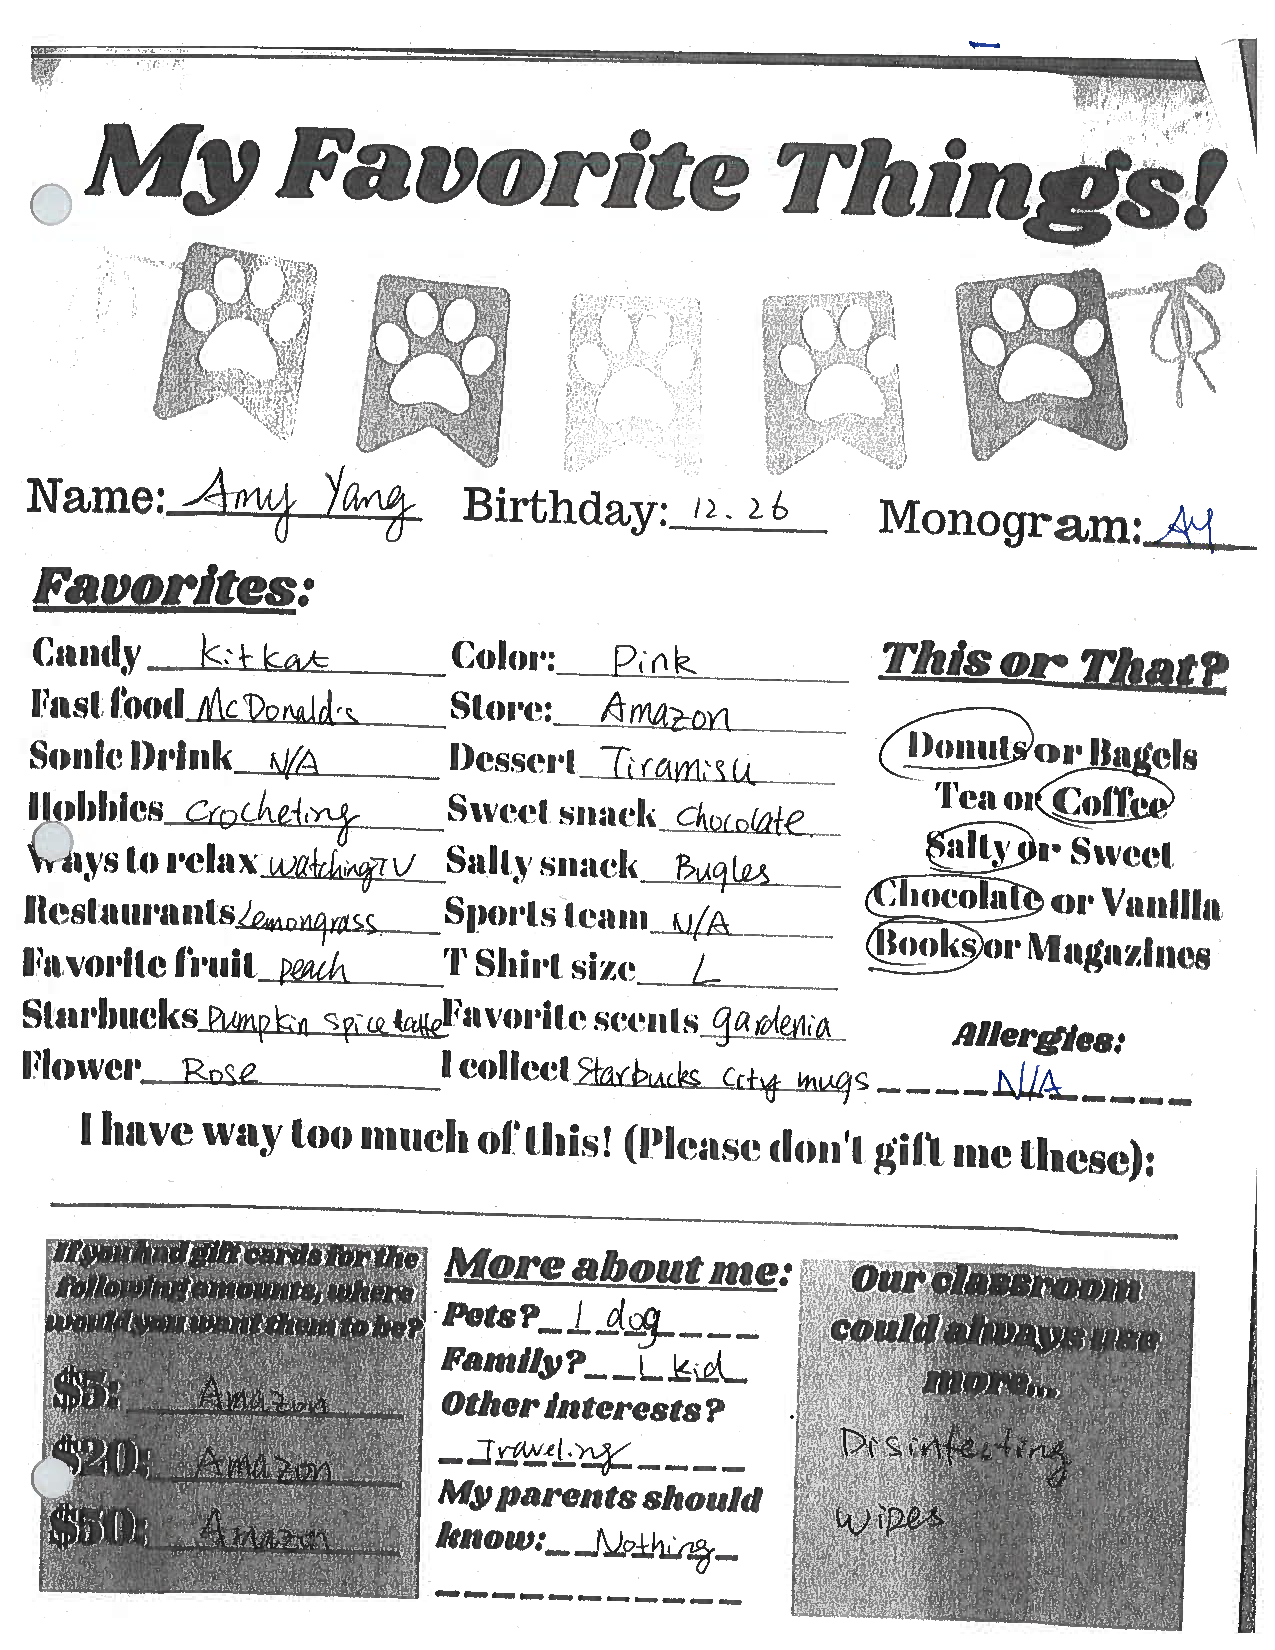 My Favorite Things!
Name: Amy Yang Birthday: 12.26 Monogram: AY
Favorites:
Candy Kitkat
Fast food McDonald's
Sonic Drink N/A
Hobbies Crocheting
Ways to relax watching TV
Restaurants Lemongrass
Favorite fruit peach
Starbucks Pumpkin Spice Latte
Flower Rose
Color: Pink
Store: Amazon
Dessert Tiramisu
Sweet snack Chocolate
Salty snack Bugles
Sports team N/A
T Shirt size L
Favorite scents gardenia
I collect Starbucks City mugs
This or That?
Donuts or Bagels
Tea or Coffee
Salty or Sweet
Chocolate or Vanilla
Books or Magazines
Allergies:
N/A
I have way too much of this! (Please don't gift me these):
If you had gift cards for the
following amounts, where
would you want them to be?
$5: Amazon
$20: Amazon
$50: Amazon
More about me:
Pets? 1 dog
Family? 1 kid
Other interests?
Traveling
My parents should
know: Nothing
Our classroom
could always use
more...
Disinfecting
wipes